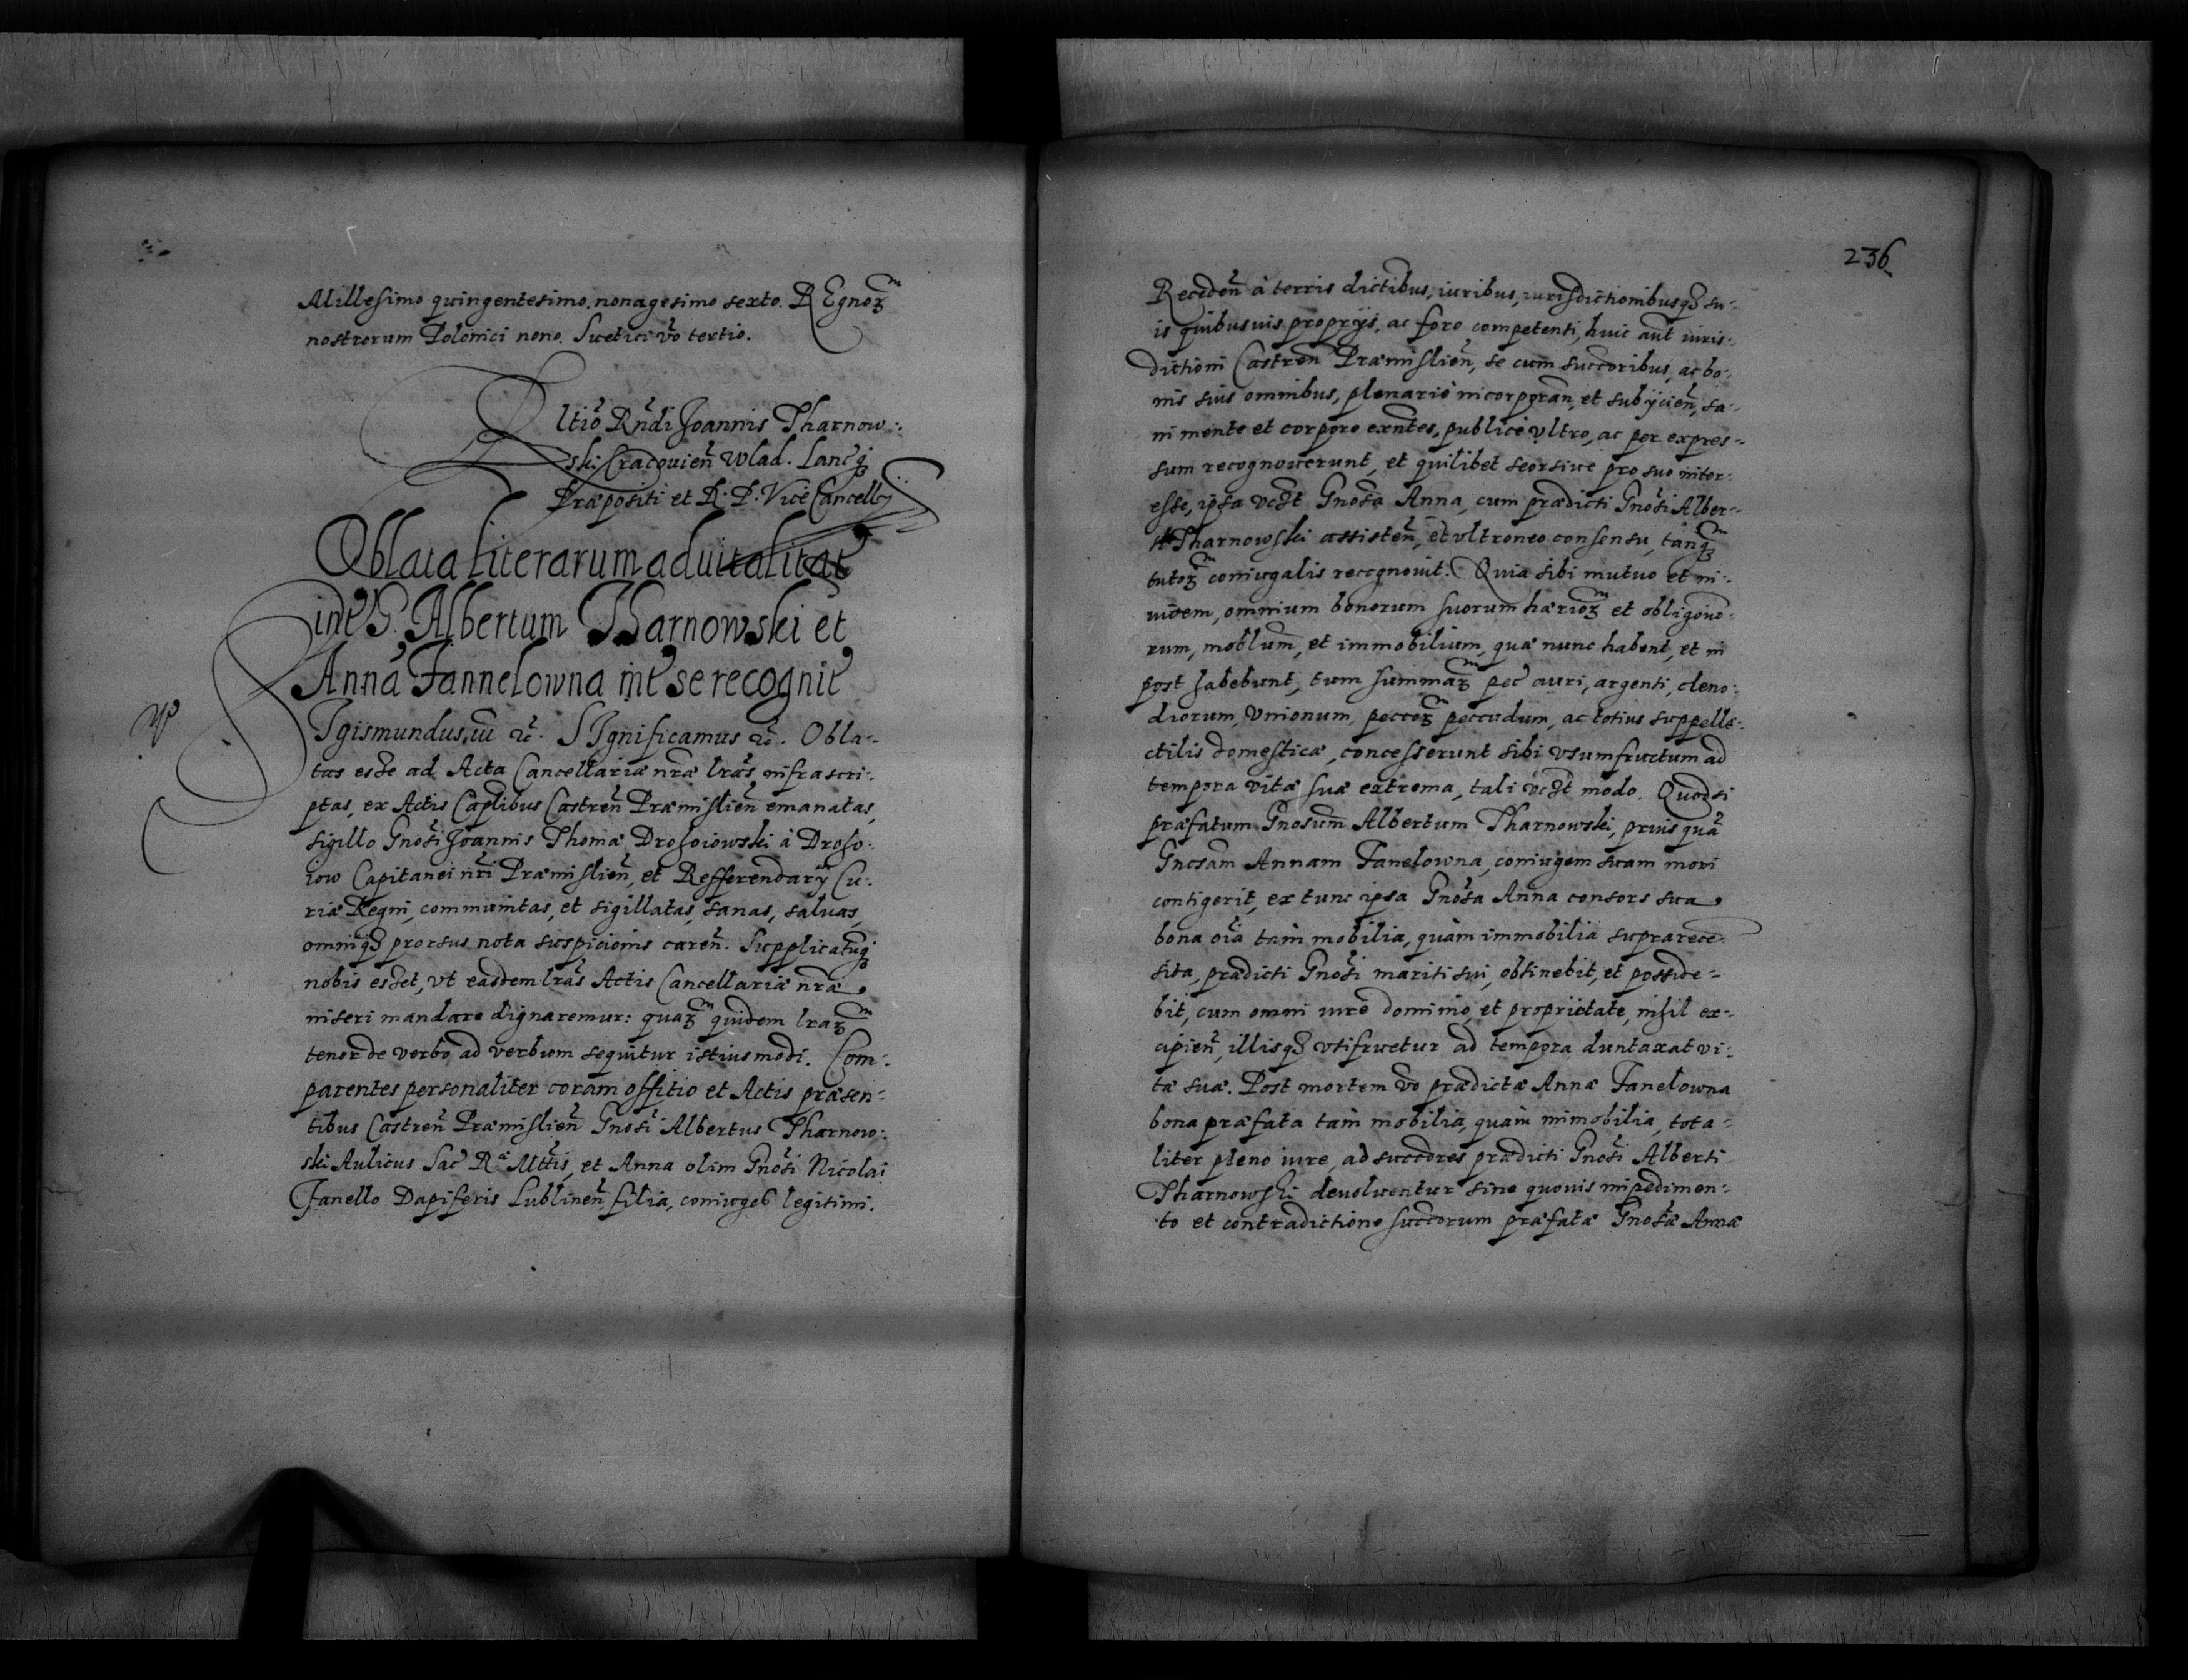 Millesimo quingentesimo nonagesimo sexto. REgnoꝝ
nostrorum Polonici nono. Suetici vo tertio.
Rltio Rndi Joannis Tharnow:
ski Cracovien Wlad. Lancq
Præpositi et R. P. Vice Cancellỹ
Oblata literarum advitalitat
int G. Albertum Tharnowski et
Anna Fannelowna int se recognit
SIgismundus iii ꝛc. SIgnificamus ꝛc. Obla-
tas esse ad Acta Cancellariæ nræ lras infrascri:
ptas, ex Actis Caplibus Castren Præmislien emanatas,
sigillo Gnosi Joannis Thomæ Drohoiowski à Droho:
iow Capitanei nri Præmislien, et Refferendarÿ Cu:
riæ Regni, communitas, et sigillatas, sanas, salvas,
omniqȝ prorsus nota suspicionis caren. Supplicatumqȝ
nobis esset, vt easdem lras Actis Cancellariæ nræ
inseri mandare dignaremur: quaꝝ quidem lraꝝ
tenor de verbo, ad verbum sequitur istiusmodi. Com:
parentes personaliter coram offitio et Actis præsen:
tibus Castren Præmislien Gnosi Albertus Tharnow:
ski Aulicus Sac Ræ Mttis, et Anna olim Gnosi Nicolai
Fanello Dapiferis Lublinen, filia, coniuges legitimi.
236
Receden à terris dictibus, iuribus, iurisdictionibusqȝ su:
is quibusuis proprijs, ac foro competenti, huic aut iuris:
dictioni Castren Præmislien, se cum succoribus, ac bo:
nis suis omnibus, plenarie incorporan, et subijcien, sa:
ni mente et corpore exntes, publice vltro, ac per expres:
sum recognoverunt, et quilibet seorsive pro suo inter:
esse, ipsa vczt Gnosa Anna, cum prædicti Gnosi Alber:
ti Tharnowski assisten, et vltroneo consensu, tanqȝ
tutoꝝ coniugalis recognovit. Quia sibi mutuo et in:
vicem, omnium bonorum suorum hærioꝝ et obligono:
rum, moblium, et immobilium, quæ nunc habent, et in
post habebunt, tum summaꝝ pec auri, argenti, cleno:
diorum, Vnionum, peccoꝝ peccudum, ac totius suppelle:
ctilis domesticæ, concesserunt sibi vsumfructum ad
tempora vitæ suæ extrema, tali vczt modo. Quodsi
præfatum Gnosum Albertum Tharnowski, prius qua
Gnosam Annam Fanelowna, coniugem suam mori
contigerit, ex tunc ipsa Gnosa Anna consors sua
bona oia tam mobilia, quàm immobilia suprarece:
sita, prædicti Gnosi mariti sui, obtinebit, et posside:
bit, cum omni iure dominio, et proprietate, nihil ex:
cipien, illisqȝ vtifruetur ad tempora duntaxat vi:
tæ suæ. Post mortem vo prædictæ Annæ Fanelowna
bona præfata tam mobilia, quàm immobilia, tota:
liter pleno iure, ad succores prædicti Gnosi Alberti
Tharnowski devolventur sine quovis impedimen:
to et contradictione succorum præfatæ Gnosæ Annæ